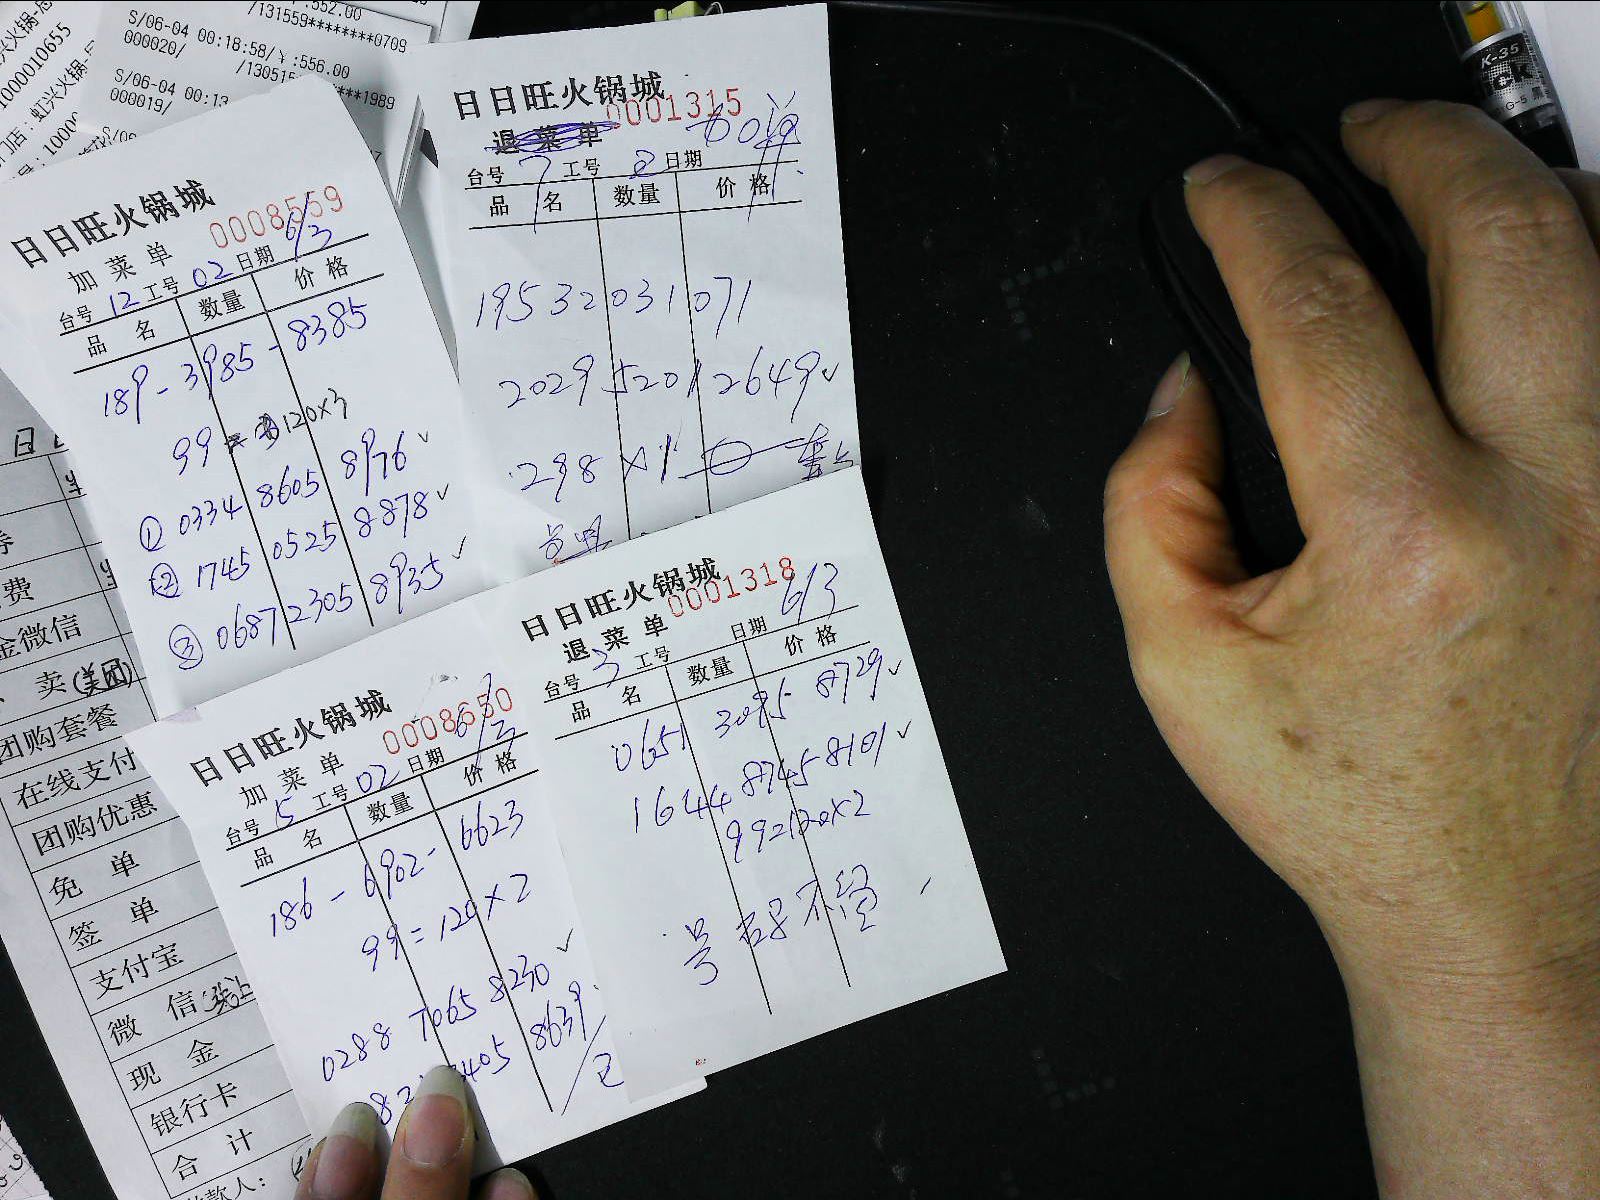 :552.00
/131559********0709
S/06-04 00:18:58/¥:556.00
000020/
/130515
****1989
S/06-04 00:13
000019/
S/06
1000010655
日日旺火锅城
0008559
加菜单
台号 12 工号 02 日期 6/3
品 名 数量 价 格
189-3985-8385
99 = 120×3
① 0334 8605 8976 ✓
② 1745 0525 8878 ✓
③ 0687 2305 8935 ✓
日日旺火锅城
0001315
退菜单
台号 7 工号 2 日期
品 名 数量 价 格
19532031071
2029 5201 2649 ✓
298 ×1
日日旺火锅城
0008650
加菜单
台号 5 工号 02 日期 6/3
品 名 数量 价 格
186-6902-6623
99=120×2
0288 7065 8230 ✓
3405 8639
日日旺火锅城
0001318
退菜单
台号 3 工号 日期 6/3
品 名 数量 价 格
0651 3095 8729 ✓
1644 8745 8101 ✓
费
金微信
卖(美团)
团购套餐
在线支付
团购优惠
免 单
签 单
支付宝
微 信
现 金
银行卡
合 计
款人:
K-35
G-5